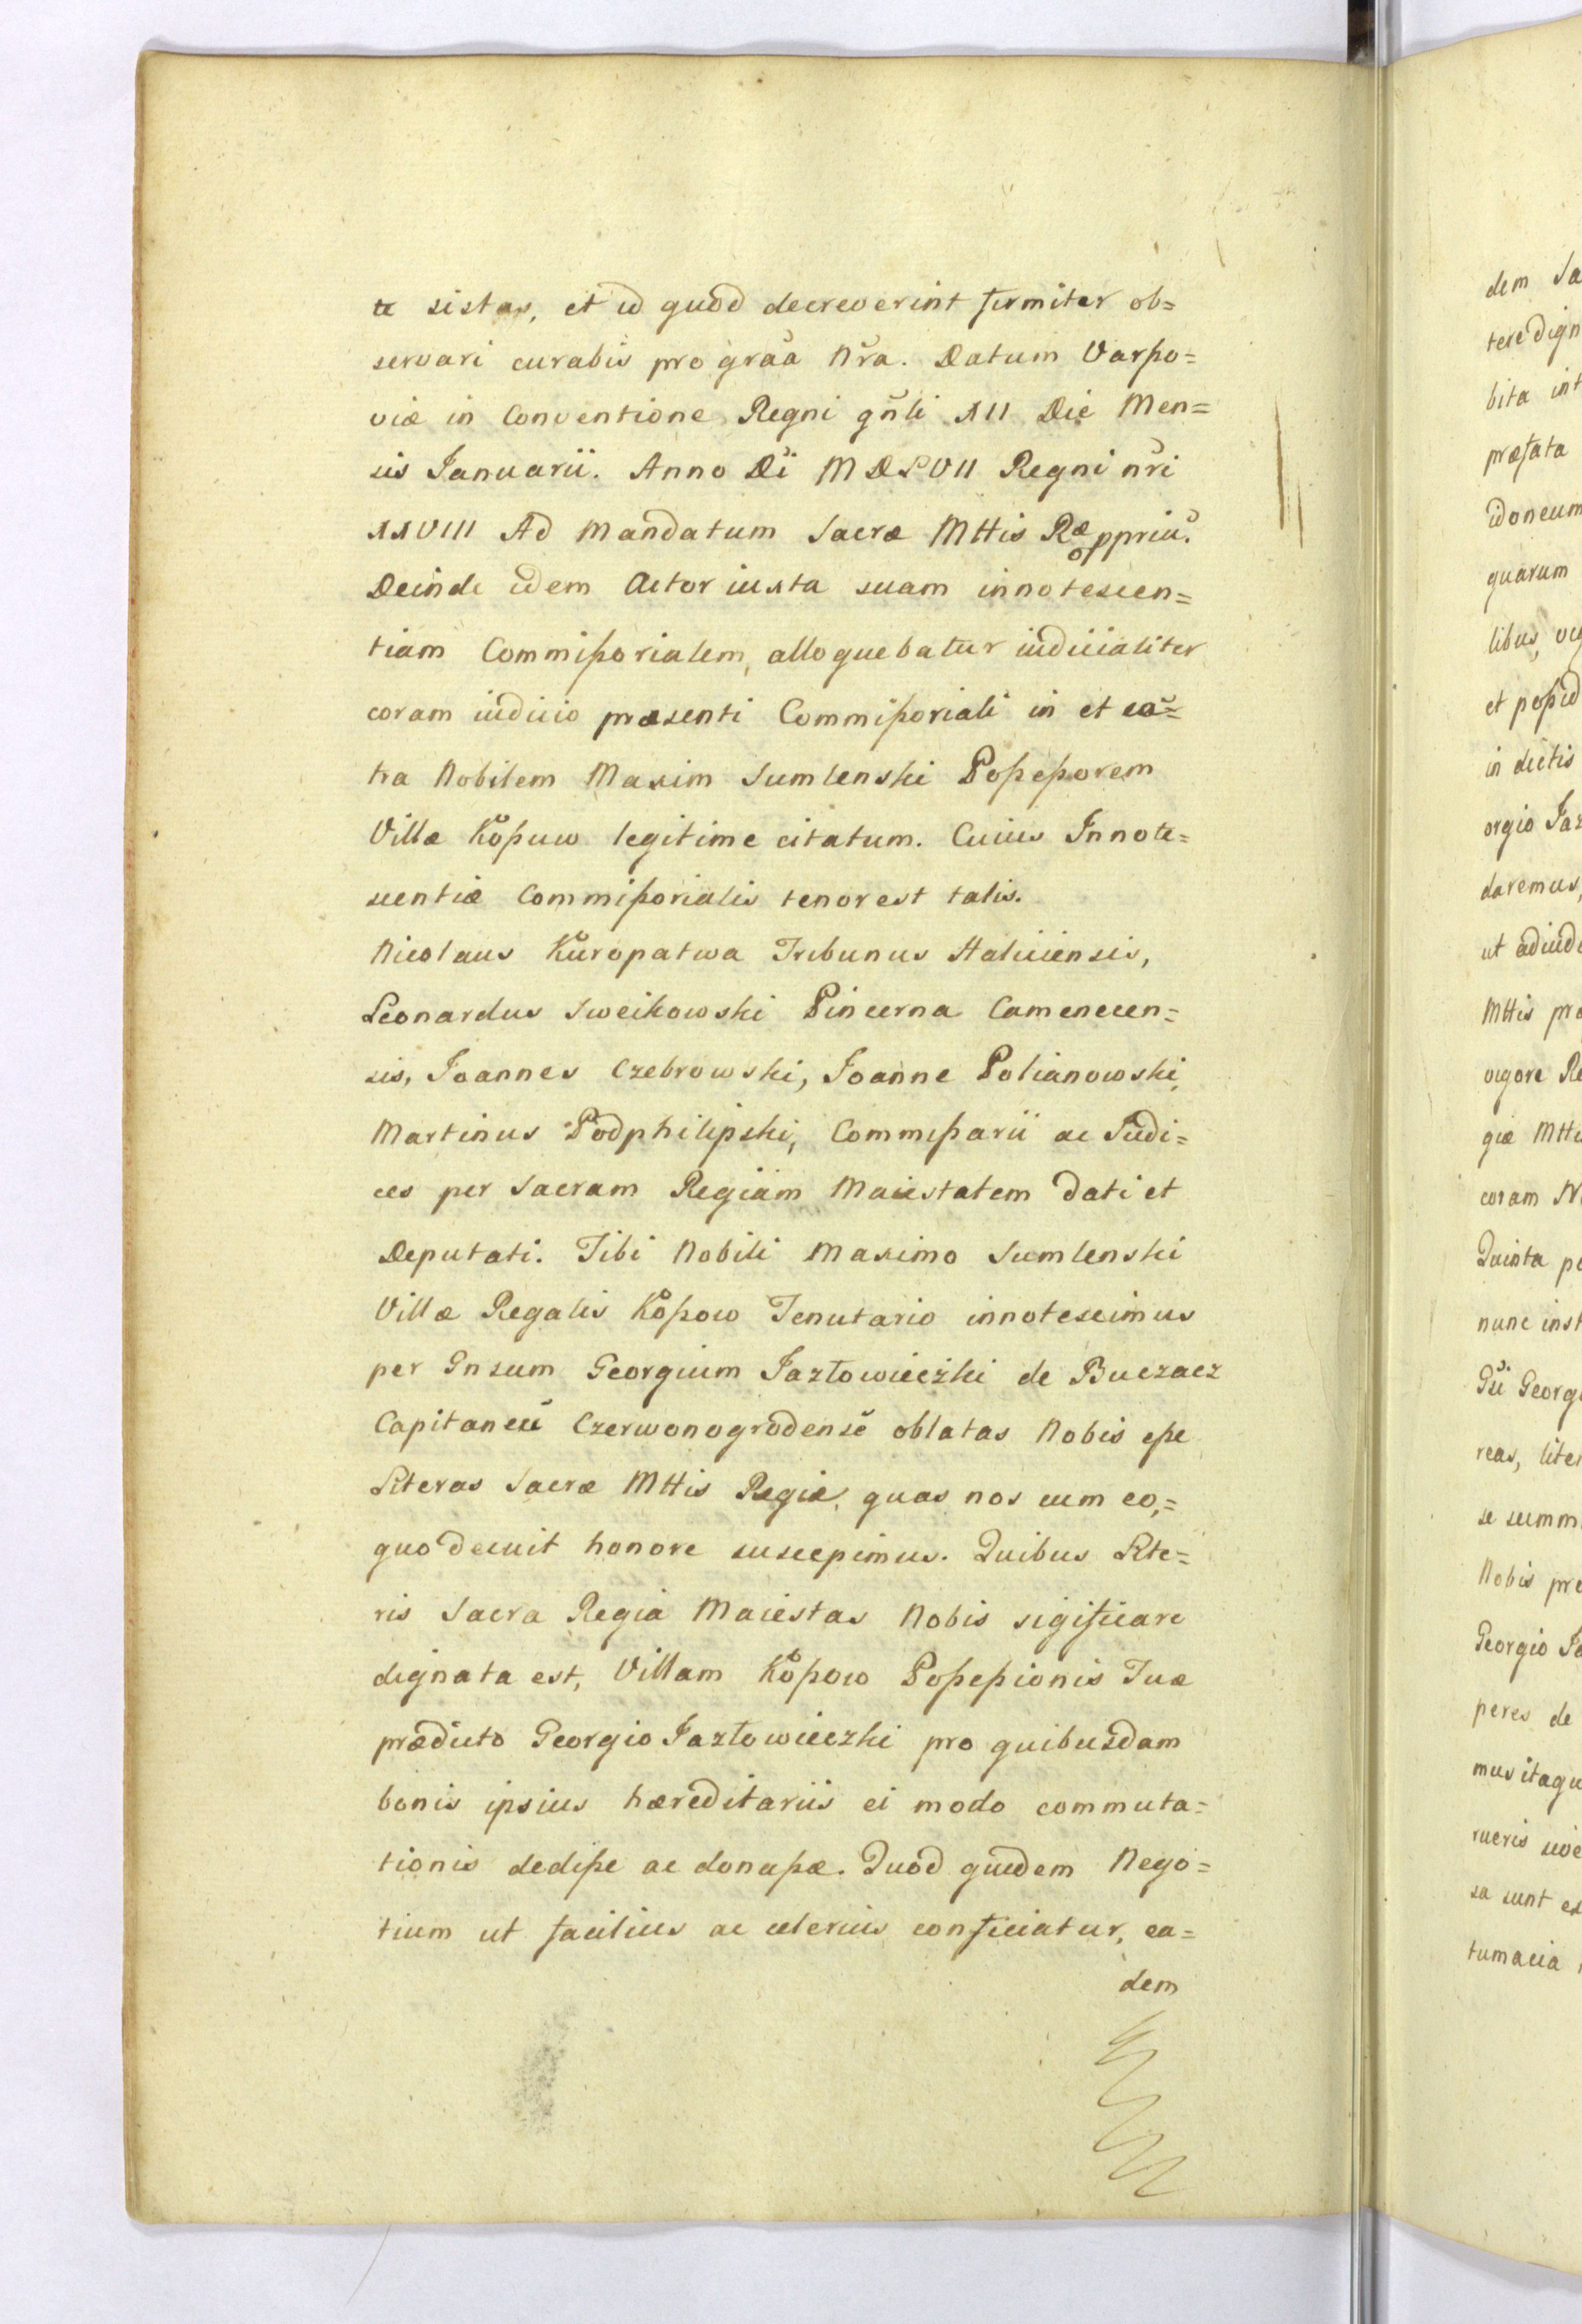 te sistas, et id quod decreverint firmiter ob=
servari curabis pro gr̃aa nr̃a. Datum Varßo=
viæ in Conventione Regni gñli XII Die Men=
sis Januarii. Anno Di MDLVII Regni nr̃i
XXVIII Ad Mandatum Sacræ Mttis Ræ ppriu.
Deinde idem Actor iuxta suam innotescen=
tiam Commißorialem, alloquebatur iudicialiter
coram iudicio præsenti Commißoriali in et cõ=
tra Nobilem Maxim Sumlenski Poßeßorem
Villæ Koßuw legitime citatum. Cuius Innote=
scentiæ Commißorialis tenor est talis.
Nicolaus Kuropatwa Tribunus Haliciensis,
Leonardus Sweikowski Pincerna Camenecen=
sis, Joannes Czebrowski, Joanne Polianowski,
Martinus Podphilipski, Commißarii ac Judi=
ces per Sacram Regiam Maiestatem dati et
Deputati. Tibi Nobili Maximo Sumlenski
Villæ Regalis Koßow Tenutario innotescimus
per Gnsum Georgium Jazłowieczki de Buczacz
Capitaneũ Czerwonogrodensẽ oblatas Nobis eße
Literas Sacræ Mttis Regiæ, quas nos cum eo,=
quo decuit honore suscepimus. Quibus Lite=
ris Sacra Regia Maiestas Nobis sigificare
dignata est, Villam Koßow Poßeßionis Tuæ
prædicto Georgio Jazłowieczki pro quibusdam
bonis ipsius hæreditariis ei modo commuta=
tionis dediße ac donaßæ. Quod quidem Nego=
tium ut facilius ac celerius conficiatur, ea=
dem
dem Sa
tere dign
bita int
præfata
idoneum
quarum
libus, vig
et poßid
in dictis
orgio Jaz
daremus,
ut adiudi
Mttis pro
vigore Re
giæ Mtti
coram N
Quinta po
nunc inst
Gsi Georgi
reas, liter
se summ
Nobis pre
Georgio Ja
peres de
mus itaqu
rueris sive
sa sunt ex
tumacia